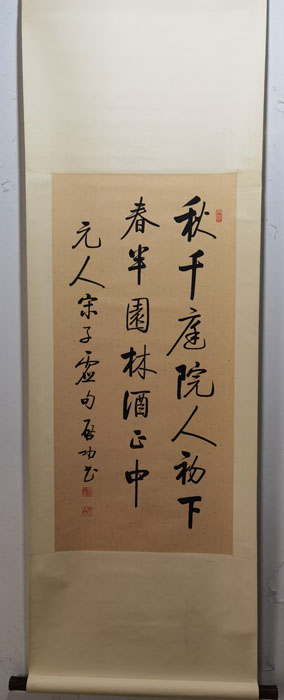 秋千庭院人初下
春半園林酒正中
元人宋子虚句启功书